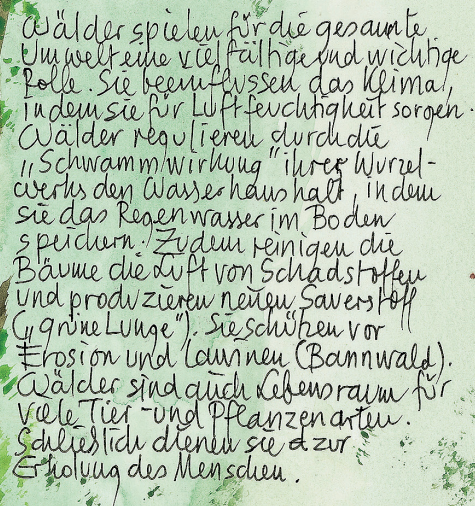 Wälder spielen für die gesamte
Umwelt eine vielfältige und wichtige
Rolle. Sie beeinflussen das Klima,
indem sie für Luftfeuchtigkeit sorgen.
Wälder regulieren durch die
„Schwammwirkung" ihres Wurzel-
werks den Wasserhaushalt, indem
sie das Regenwasser im Boden
speichern. Zudem reinigen die
Bäume die Luft von Schadstoffen
und produzieren neuen Sauerstoff
(„grüne Lunge"). Sie schützen vor
Erosion und Lawinen (Bannwald).
Wälder sind auch Lebensraum für
viele Tier- und Pflanzenarten.
Schließlich dienen sie zur
Erholung des Menschen.